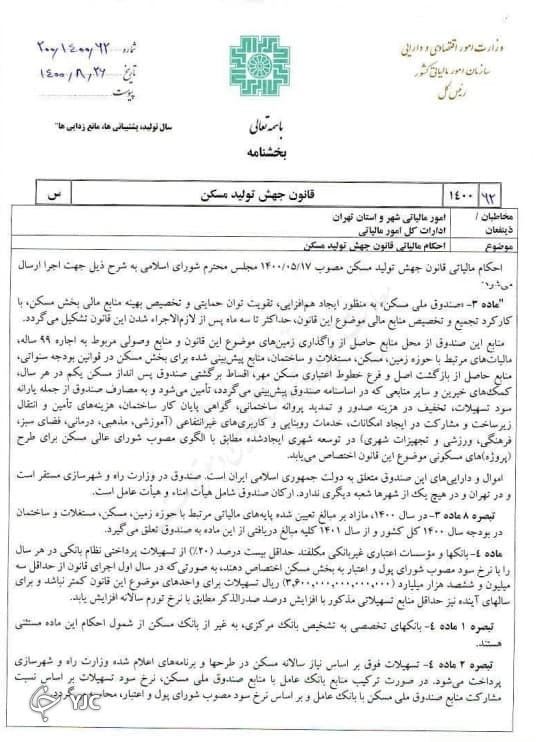 وزارت امور اقتصادی و دارایی
سازمان امور مالیاتی کشور
رئیس کل
شماره ۲۰۰/۱۴۰۰/۶۲
تاریخ ۱۴۰۰/۸/۲۶
پیوست
باسمه تعالی
سال تولید، پشتیبانی ها، مانع زدایی ها"
بخشنامه
۶۲ ۱۴۰۰ قانون جهش تولید مسکن س
مخاطبان/ ذینفعان
امور مالیاتی شهر و استان تهران
ادارات کل امور مالیاتی
موضوع احکام مالیاتی قانون جهش تولید مسکن
احکام مالیاتی قانون جهش تولید مسکن مصوب ۱۴۰۰/۰۵/۱۷ مجلس محترم شورای اسلامی به شرح ذیل جهت اجرا ارسال
می‌شود:
"ماده ۳- «صندوق ملی مسکن» به منظور ایجاد هم‌افزایی، تقویت توان حمایتی و تخصیص بهینه منابع مالی بخش مسکن، با
کارکرد تجمیع و تخصیص منابع مالی موضوع این قانون، حداکثر تا سه ماه پس از لازم‌الاجراء شدن این قانون تشکیل می‌گردد.
منابع این صندوق از محل منابع حاصل از واگذاری زمین‌های موضوع این قانون و منابع وصولی مربوط به اجاره ۹۹ ساله،
مالیات‌های مرتبط با حوزه زمین، مسکن، مستغلات و ساختمان، منابع پیش‌بینی شده برای بخش مسکن در قوانین بودجه سنواتی،
منابع حاصل از بازگشت اصل و فرع خطوط اعتباری مسکن مهر، اقساط برگشتی صندوق پس انداز مسکن یکم در هر سال،
کمک‌های خیرین و سایر منابعی که در اساسنامه صندوق پیش‌بینی می‌گردد، تأمین می‌شود و به مصارف صندوق از جمله یارانه
سود تسهیلات، تخفیف در هزینه صدور و تمدید پروانه ساختمانی، گواهی پایان کار ساختمان، هزینه‌های تأمین و انتقال
زیرساخت و مشارکت در ایجاد امکانات، خدمات روبنایی و کاربری‌های غیرانتفاعی (آموزشی، مذهبی، درمانی، فضای سبز،
فرهنگی، ورزشی و تجهیزات شهری) در توسعه شهری ایجادشده مطابق با الگوی مصوب شورای عالی مسکن برای طرح
(پروژه)های مسکونی موضوع این قانون اختصاص می‌یابد.
اموال و دارایی‌های این صندوق متعلق به دولت جمهوری اسلامی ایران است. صندوق در وزارت راه و شهرسازی مستقر است
و در تهران و در هیچ یک از شهرها شعبه دیگری ندارد. ارکان صندوق شامل هیأت امناء و هیأت عامل است.
تبصره ۸ ماده ۳- در سال ۱۴۰۰، مازاد بر مبالغ تعیین شده پایه‌های مالیاتی مرتبط با حوزه زمین، مسکن، مستغلات و ساختمان
در بودجه سال ۱۴۰۰ کل کشور و از سال ۱۴۰۱ کلیه مبالغ دریافتی از این ماده به صندوق تعلق می‌گیرد.
ماده ۴- بانکها و مؤسسات اعتباری غیربانکی مکلفند حداقل بیست درصد (۲۰٪) از تسهیلات پرداختی نظام بانکی در هر سال
را با نرخ سود مصوب شورای پول و اعتبار به بخش مسکن اختصاص دهند، به صورتی‌که در سال اول اجرای قانون از حداقل سه
میلیون و ششصد هزار میلیارد (۳٫۶۰۰٫۰۰۰٫۰۰۰٫۰۰۰٫۰۰۰) ریال تسهیلات برای واحدهای موضوع این قانون کمتر نباشد و برای
سالهای آینده نیز حداقل منابع تسهیلاتی مذکور با افزایش درصد صدرالذکر مطابق با نرخ تورم سالانه افزایش یابد.
تبصره ۱ ماده ۴- بانکهای تخصصی به تشخیص بانک مرکزی، به غیر از بانک مسکن از شمول احکام این ماده مستثنی
هستند.
تبصره ۲ ماده ۴- تسهیلات فوق بر اساس نیاز سالانه مسکن در طرحها و برنامه‌های اعلام شده وزارت راه و شهرسازی
پرداخت می‌شود. در صورت ترکیب منابع بانک عامل با منابع صندوق ملی مسکن، نرخ سود تسهیلات بر اساس نسبت
مشارکت منابع صندوق ملی مسکن با بانک عامل و بر اساس نرخ سود مصوب شورای پول و اعتبار، محاسبه می‌گردد.
YJC